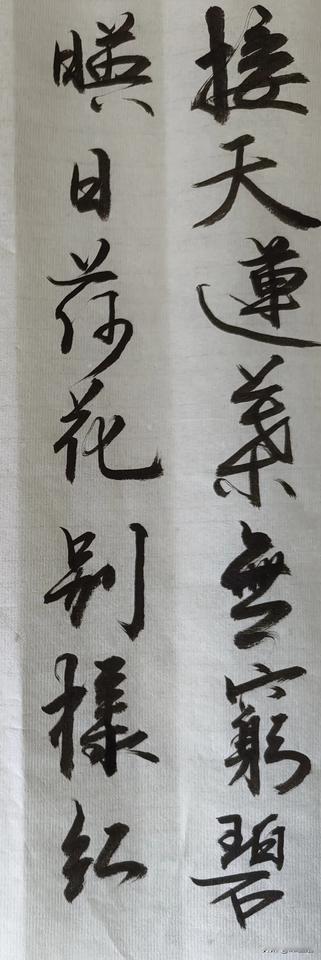 接天蓮葉無窮碧
暎日荷花別樣紅